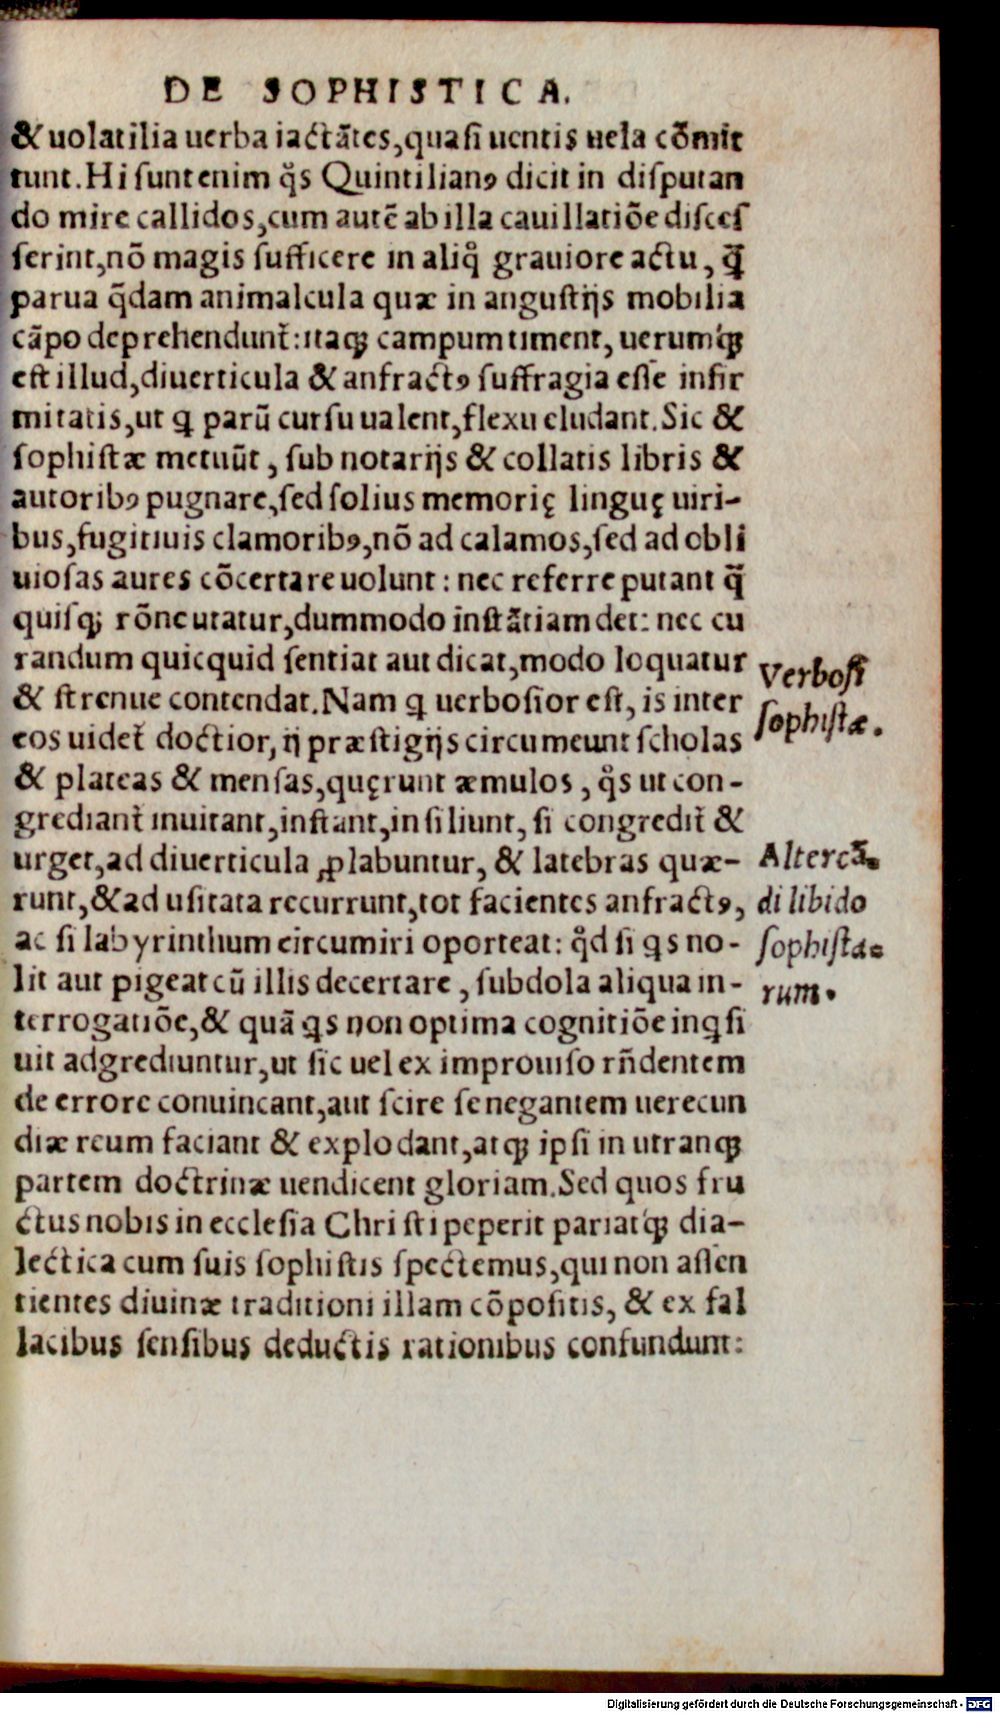 DE SOPHISTICA.
& uolatilia uerba iactātes,quasi uentis uela cōmit
tunt.Hi sunt enim q̊s Quintilianꝰ dicit in disputan
do mire callidos,cum autē ab illa cauillatiōe disces
serint,nō magis sufficere in aliq̊ grauiore actu, q̄
parua q̄dam animalcula quæ in angustijs mobilia
cāpo deprehendunt᷑:itaqꝫ campum timent, uerumqꝫ
est illud,diuerticula & anfractꝰ suffragia esse infir
mitatis,ut ꝗ parū cursu ualent,flexu eludant.Sic &
sophistæ metuūt , sub notarijs & collatis libris &
autoribꝰ pugnare,sed solius memorię linguę uiri-
bus,fugitiuis clamoribꝰ,nō ad calamos,sed ad obli
uiosas aures cōcertare uolunt : nec referre putant q̄
quisqꝫ rōne utatur,dummodo instātiam det: nec cu
randum quicquid sentiat aut dicat,modo loquatur
& strenue contendat.Nam ꝗ uerbosior est, is inter
eos uidet᷑ doctior, ij præstigijs circumeunt scholas
& plateas & mensas,quęrunt æmulos , q̊s ut con-
grediant᷑ inuitant,instant,insiliunt, si congredit᷑ &
urget,ad diuerticula ꝓlabuntur, & latebras quæ-
runt,& ad usitata recurrunt,tot facientes anfractꝰ,
ac si labyrinthum circumiri oporteat: q̊d si ꝗs no-
lit aut pigeat cū illis decertare , subdola aliqua in-
terrogatiōe,& quā ꝗs non optima cognitiōe inꝗsi
uit adgrediuntur,ut sic uel ex improuiso rn̄dentem
de errore conuincant,aut scire se negantem uerecun
diæ reum faciant & explodant,atqꝫ ipsi in utranqꝫ
partem doctrinæ uendicent gloriam.Sed quos fru
ctus nobis in ecclesia Christi peperit pariatqꝫ dia-
lectica cum suis sophistis spectemus,qui non assen
tientes diuinæ traditioni illam cōpositis, & ex fal
lacibus sensibus deductis rationibus confundunt:
Verbosi
sophistæ.
Altercā-
di libido
sophista-
rum.
Digitalisierung gefördert durch die Deutsche Forschungsgemeinschaft - DFG